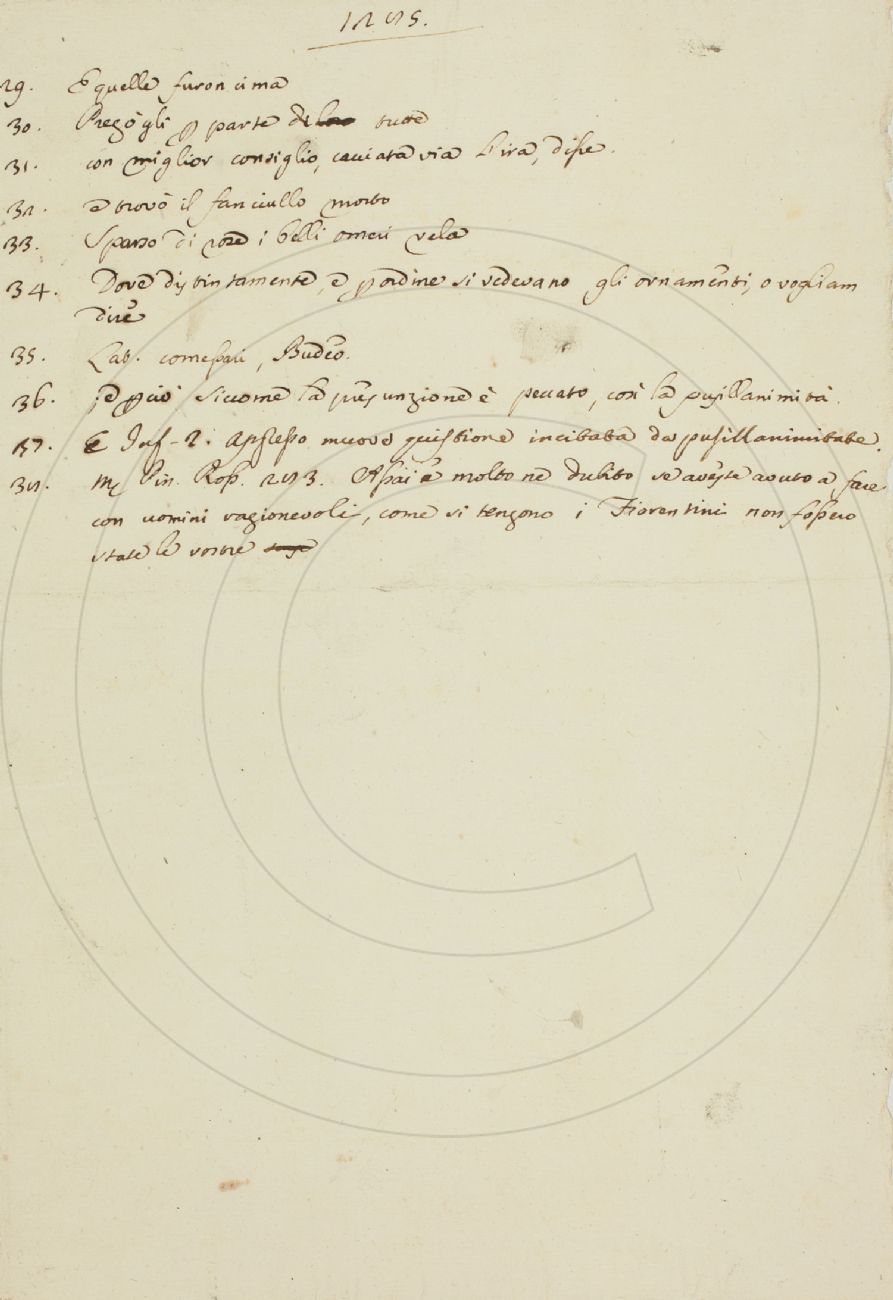 29. E quelle furon cima
30. Pregògli p parte di tutte
31. con miglior consiglio, cacciata via l'ira, disse.
32. e trovò il fanciullo morto
33. Sparso di rose i belli omeri vela
34. Dove distintamente, e p ordine si vedevano gli ornamenti, o vogliam
dire
35. Lab. come
36. e pciò siccome la presunzione è peccato, così la pusillanimità.
37. E Inf. 2. Appresso muove quistione incitata da pusillanimitate.
38. Vin. Rosp. 283. Assai e molto ne dubito se aveste avuto a fare
con uomini ragionevoli, come si tengono i Fiorentini non fossero
state le vostre